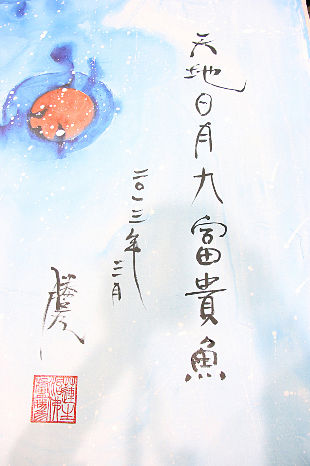 天地日月九富貴魚
二〇一三年二月